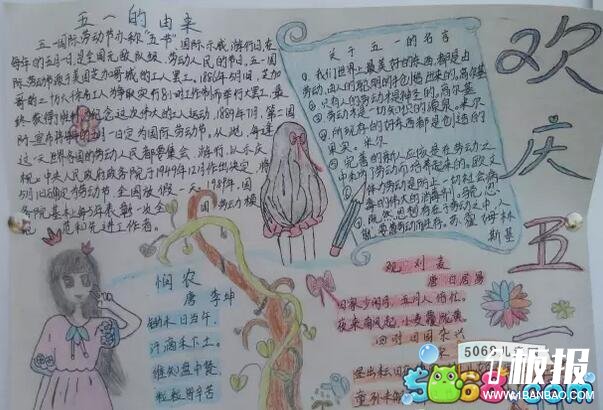 五一的由来
五一国际劳动节亦称"五一节"国际示威游行日,在
每年的五月一日,是全国无敌队级、劳动人民的节日,五一国
际劳动节源于美国芝加哥城的工人罢工。1886年5月1日,芝加
哥的工人为争取实行8小时工作制而举行大罢工,最
终获得胜利
纪念这次伟大的工人运动,1889年7月,第二国
际宣布将每年的五月一日定为国际劳动节。从此,每逢
这一天世界各国的劳动人民都要集会、游行,以示庆
祝。中央人民政府政务院于1949年12月作出决定,将
5月1日确定为劳动节,全国放假一天,1989年,国
务院基本上每5年表彰一次全国劳动模
范和先进工作者。
关于五一的名言
我们世界上最美好的东西,都是由
劳动、由人的聪明的手创造出来的。高尔基
只有人的劳动才是神圣的。高尔基
劳动是一切知识的源泉。
所有现存的好东西都是创造的
果实。米尔
完善的新人应该是在劳动之
中和为了劳动而培养起来的。欧文
体力劳动是防止一切社会病
毒的伟大的消毒剂。马克思
既然思想存在于劳动之中,人
就要靠劳动而生存。苏霍姆林
斯基
欢庆五一
悯农
唐 李绅
锄禾日当午,
汗滴禾下土。
谁知盘中餐,
粒粒皆辛苦
观刈麦
唐 白居易
田家少闲月,五月人倍忙。
夜来南风起,小麦覆陇黄。
四时田园杂兴
昼出耘田
童孙未
5068儿
5068.com
板报
WWW.1BANBAO.COM